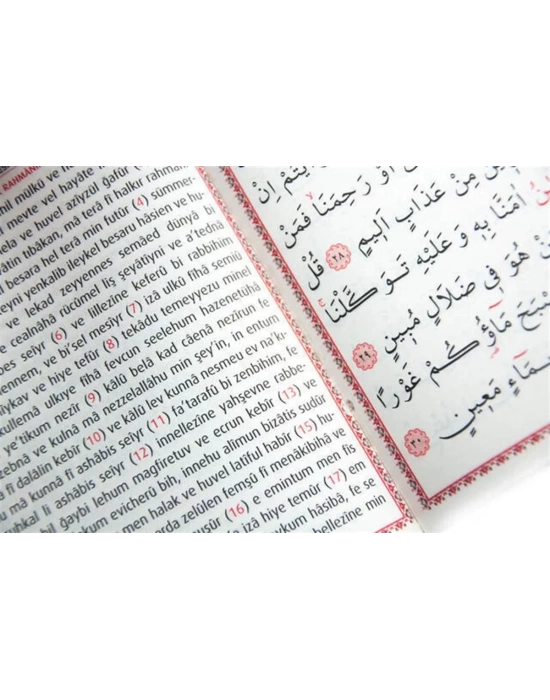 RAHMANİR
mülkü ve
meyte vel hayâte
ve huvel azîyzül gafûr
tıbâkan, mâ terâ fî halkır rahmân
besara hel terâ min futûr (4) sümmer-
yenkalib ileykel besaru hâsien ve hu-
ve lekad zeyyennes semâed dünyâ bi
cealnâhâ rücûmel liş şeyâtîyni ve a'tednâ
seiyr (6) ve lillezîne keferû bi rabbihim
ve bi'sel mesîyr (7) izâ ulkû fîhâ semiû
ve hiye tefûr (8) tekâdu temeyyezu minel
küllemâ ulkıye fîhâ fevcun seelehum hazenetühâ
e'tikum nezîr (9) kâlû belâ kad câenâ nezîrun fe
zebnâ ve kulnâ mâ nezzelallâhu min şey'in, in entum
fî dalâlin kebîr (10) ve kâlû lev kunnâ nesmeu ev na'k-
mâ kunnâ fî ashâbis seiyr (11) fa'terafû bi zenbihim, fe
uhkal li ashâbis seiyr (12) innellezîne yahşevne rabbe-
bil ğaybi lehum magfiretuv ve ecrun kebîr (13) ve
kum evicherû bih, innehu alîmun bizâtis sudûr
men halak ve huvel latîful habîr (15) hu-
arda zelûlen femşû fî menâkibihâ ve
nuşûr (16) e emintum men fis
zâ hiye temûr (17) em
ykum hâsibâ, fe se
bellezîne min
اِنْ
اَوْ رَحِمَنَا فَمَنْ
مِنْ عَذَابٍ اَلِيمٍ ٢٨ قُلْ
اٰمَنَّا بِهٖ وَ عَلَيْهِ تَوَكَّلْنَا
هُوَ فِى ضَلَالٍ مُبِينٍ ٢٩
مَآؤُكُمْ غَوْرًا
مَعِينٍ ٣٠